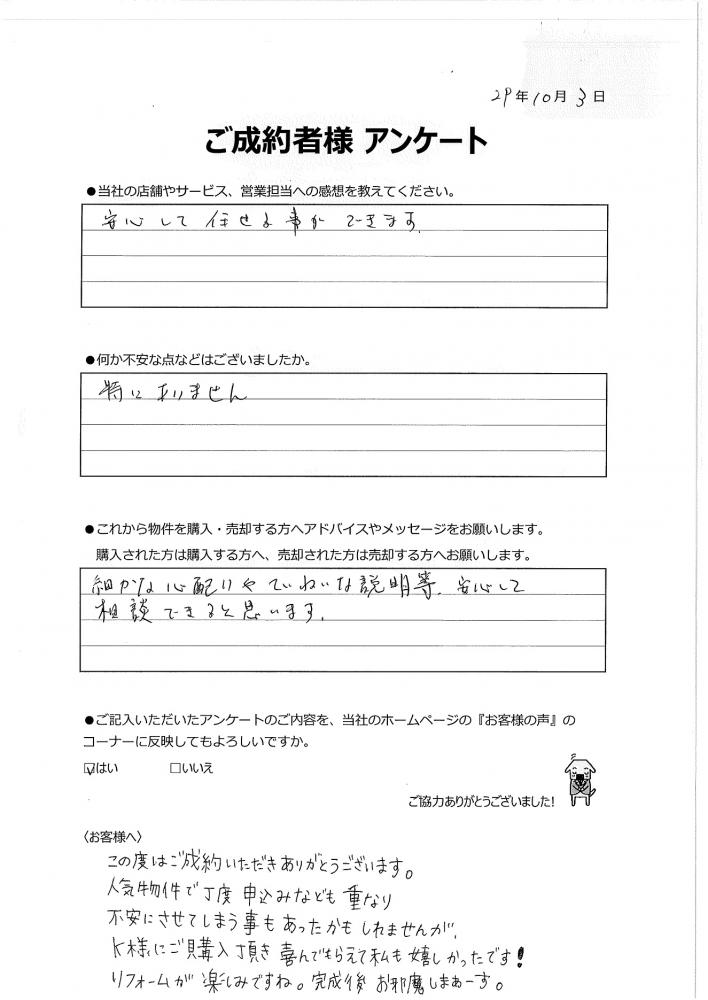 29年10月3日
ご成約者様 アンケート
●当社の店舗やサービス、営業担当への感想を教えてください。
安心して任せる事ができます.
●何か不安な点などはございましたか。
特にありません
●これから物件を購入・売却する方へアドバイスやメッセージをお願いします。
購入された方は購入する方へ、売却された方は売却する方へお願いします。
細かな心配りやていねいな説明等、安心して
相談できると思います.
●ご記入いただいたアンケートのご内容を、当社のホームページの『お客様の声』の
コーナーに反映してもよろしいですか。
☑はい □いいえ
ご協力ありがとうございました!
〈お客様へ〉
この度はご成約いただきありがとうございます。
人気物件で丁度申込みなども重なり
不安にさせてしまう事もあったかもしれませんが、
K様にご購入頂き喜んでもらえて私も嬉しかったです!
リフォームが楽しみですね。完成後お邪魔しまぁーす。